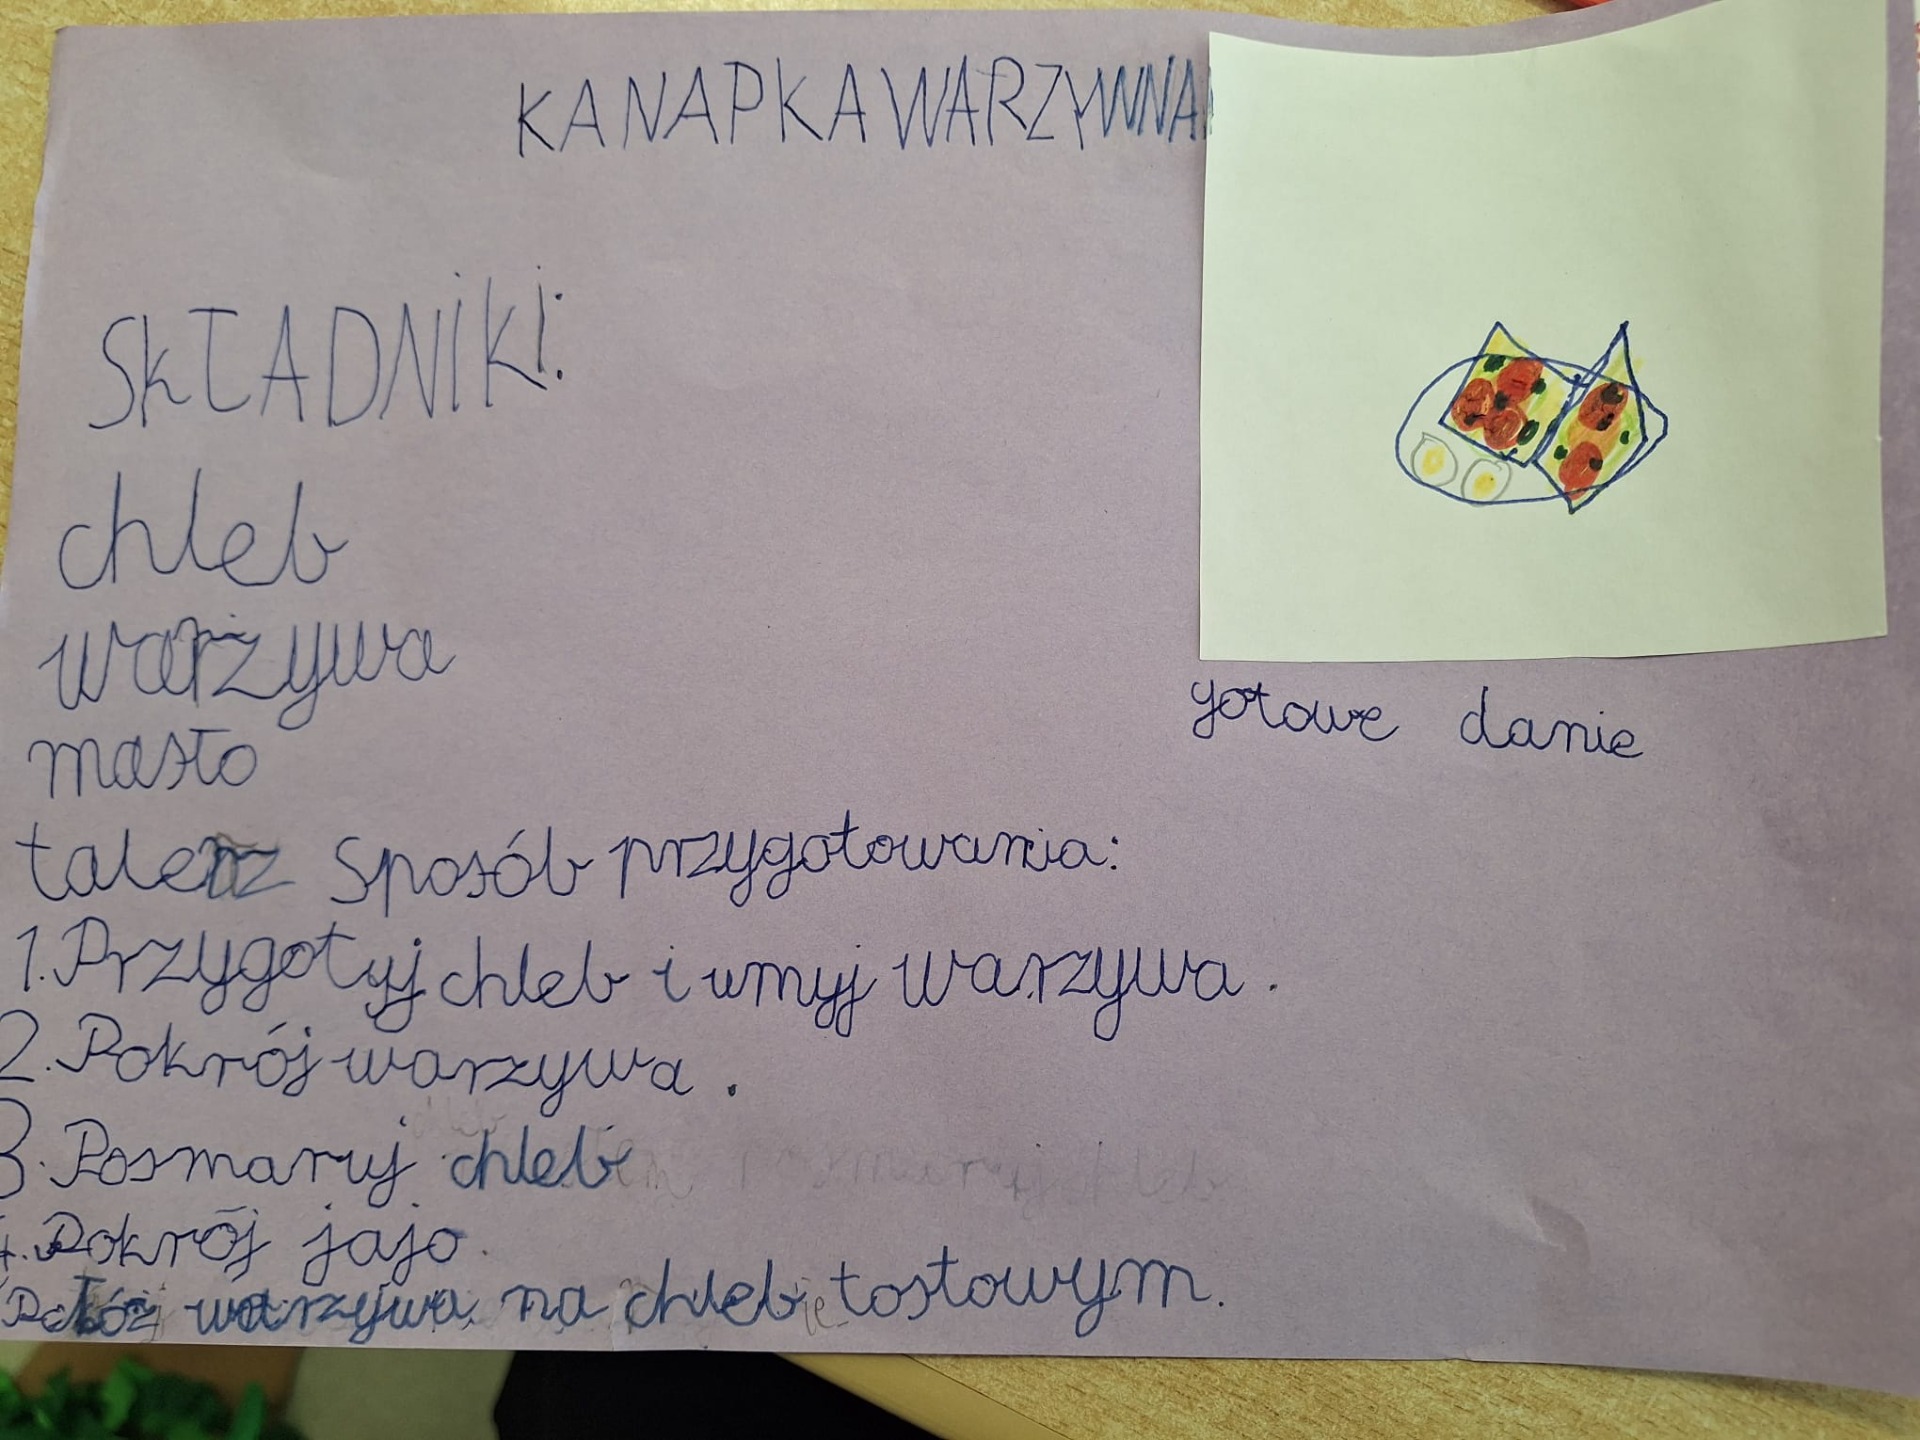 KANAPKA WARZYWNA
SKŁADNIKI:
chleb
warzywa
masło
gotowe danie
talerz Sposób przygotowania:
1. Przygotuj chleb i umyj warzywa.
2. Pokrój warzywa.
3. Posmaruj chleb
4. Pokrój jajo.
warzywa na chleb tostowym.